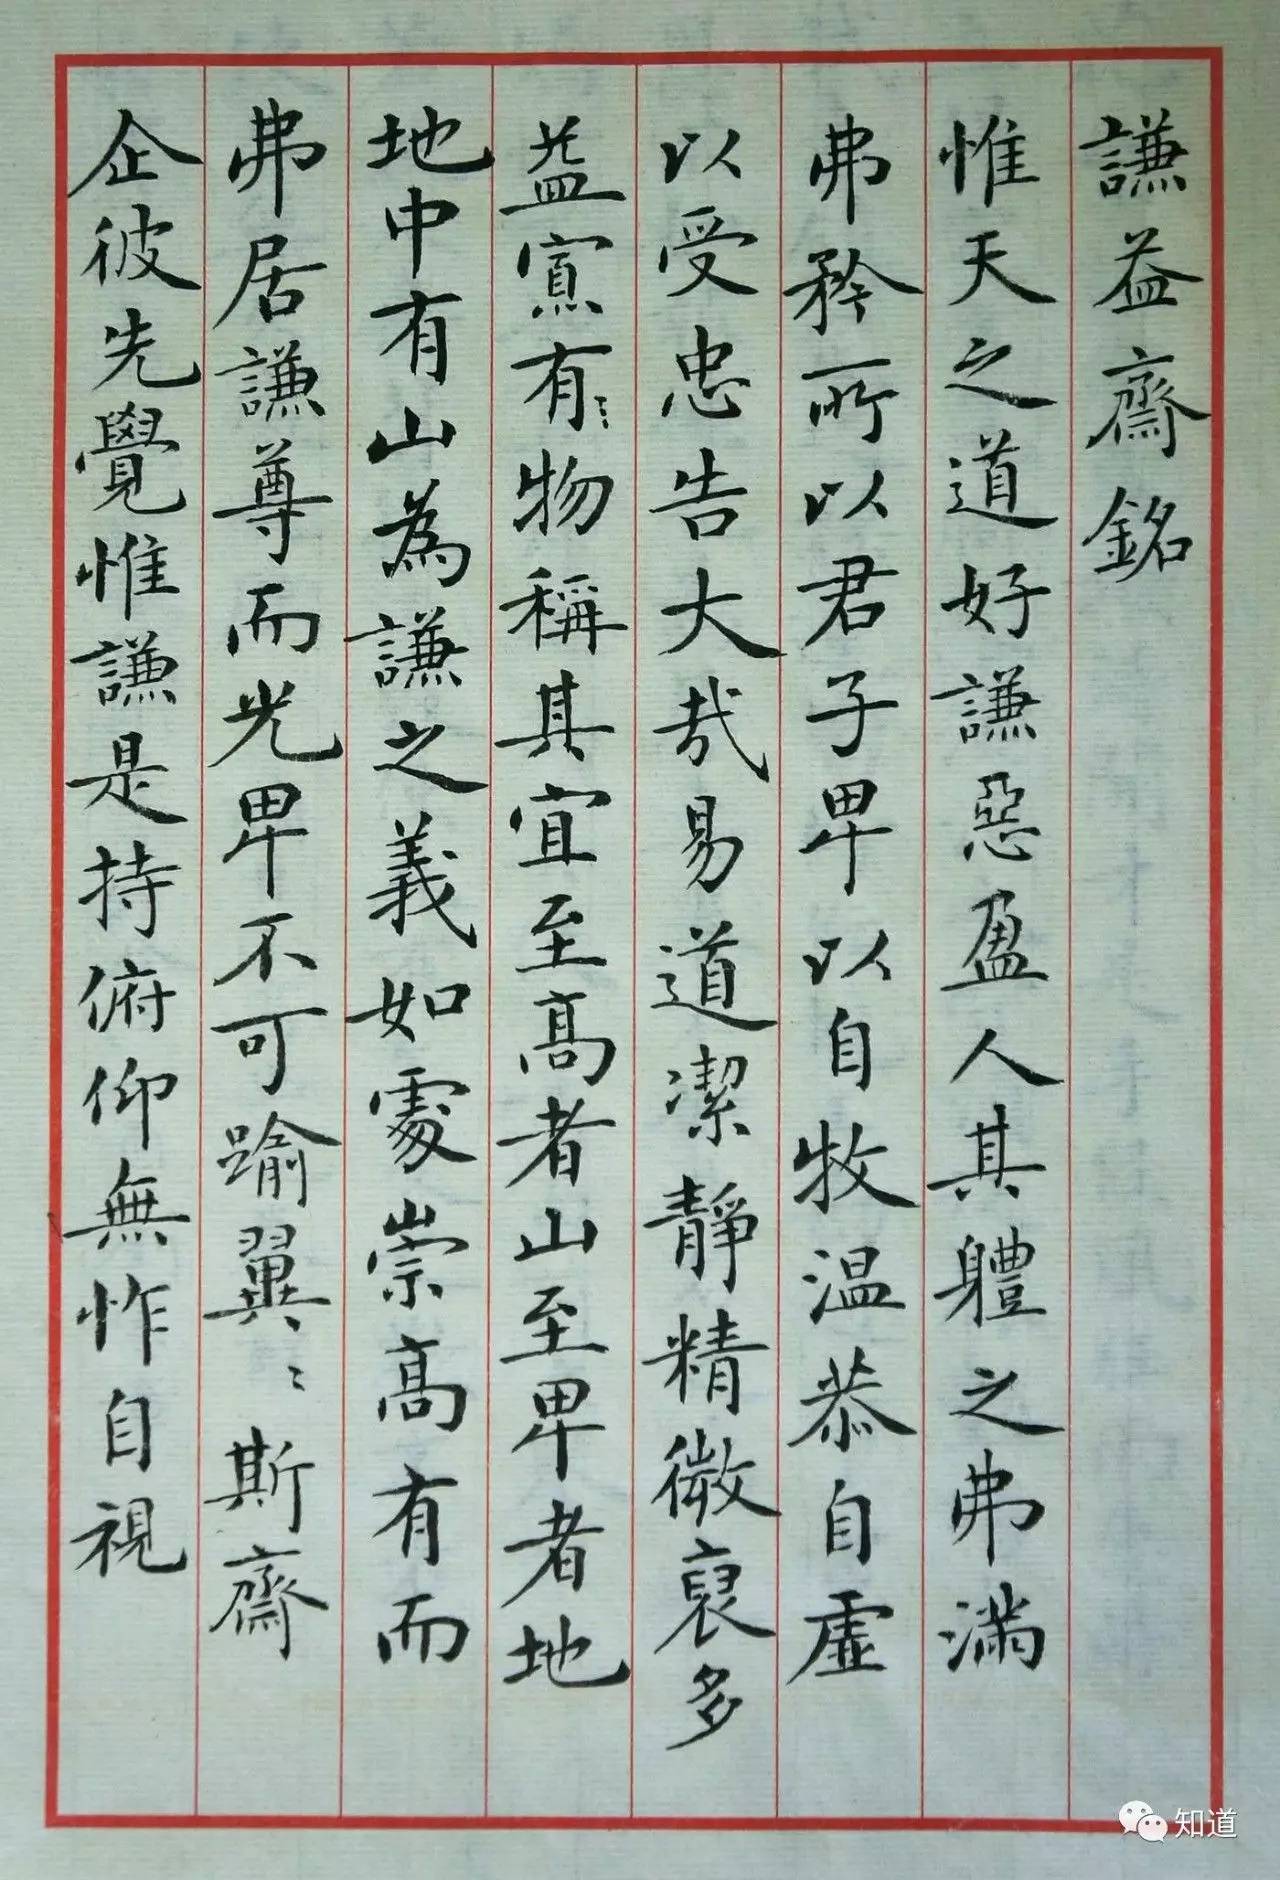 謙益齋銘
惟天之道好謙惡盈人其體之弗滿
弗矜所以君子卑以自牧温恭自虛
以受忠告大哉易道潔靜精微裒多
益寡有物稱其宜至高者山至卑者地
地中有山為謙之義如處崇高有而
弗居謙尊而光卑不可踰翼〻斯齋
企彼先覺惟謙是持俯仰無怍自視
知道